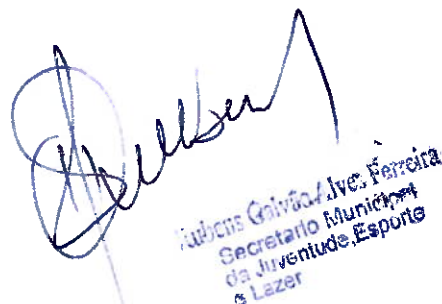 Rubens Galvão Alves Ferreira
Secretario Municipal
da Juventude, Esporte
e Lazer